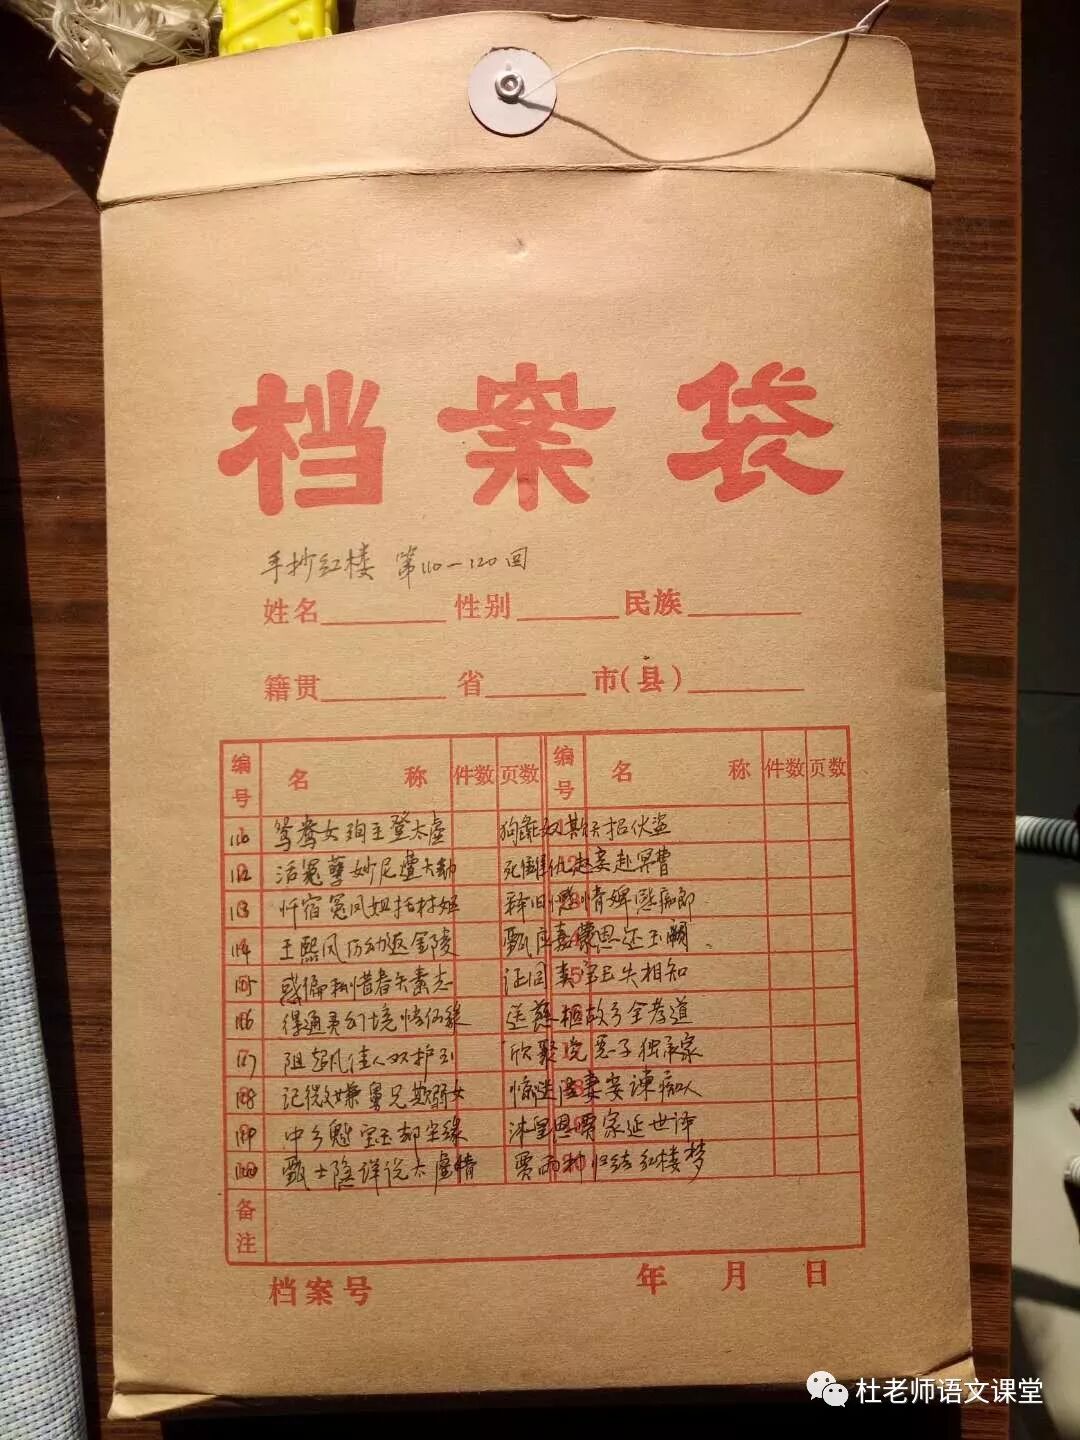 档案袋
手抄红楼 第110—120回
姓名 性别 民族
籍贯 省 市(县)
编号 名称 件数 页数 编号 名称 件数 页数
鸳鸯女殉主登太虚 狗彘奴欺天招伙盗
112 活冤孽妙尼遭大劫 死雠仇赵妾赴冥曹
113 忏宿冤凤姐托村妪 释旧憾情婢感痴郎
114 王熙凤历幻返金陵 甄应嘉蒙恩还玉阙
惑偏私惜春矢素志 证同类宝玉失相知
116 得通灵幻境悟仙缘 送慈柩故乡全孝道
117 阻超凡佳人双护玉 欣聚党恶子独承家
118 记微嫌舅兄欺弱女 惊谜语妻妾谏痴人
119 中乡魁宝玉却尘缘 沐皇恩贾家延世泽
甄士隐详说太虚情 贾雨村归结红楼梦
备注
档案号 年 月 日
杜老师语文课堂